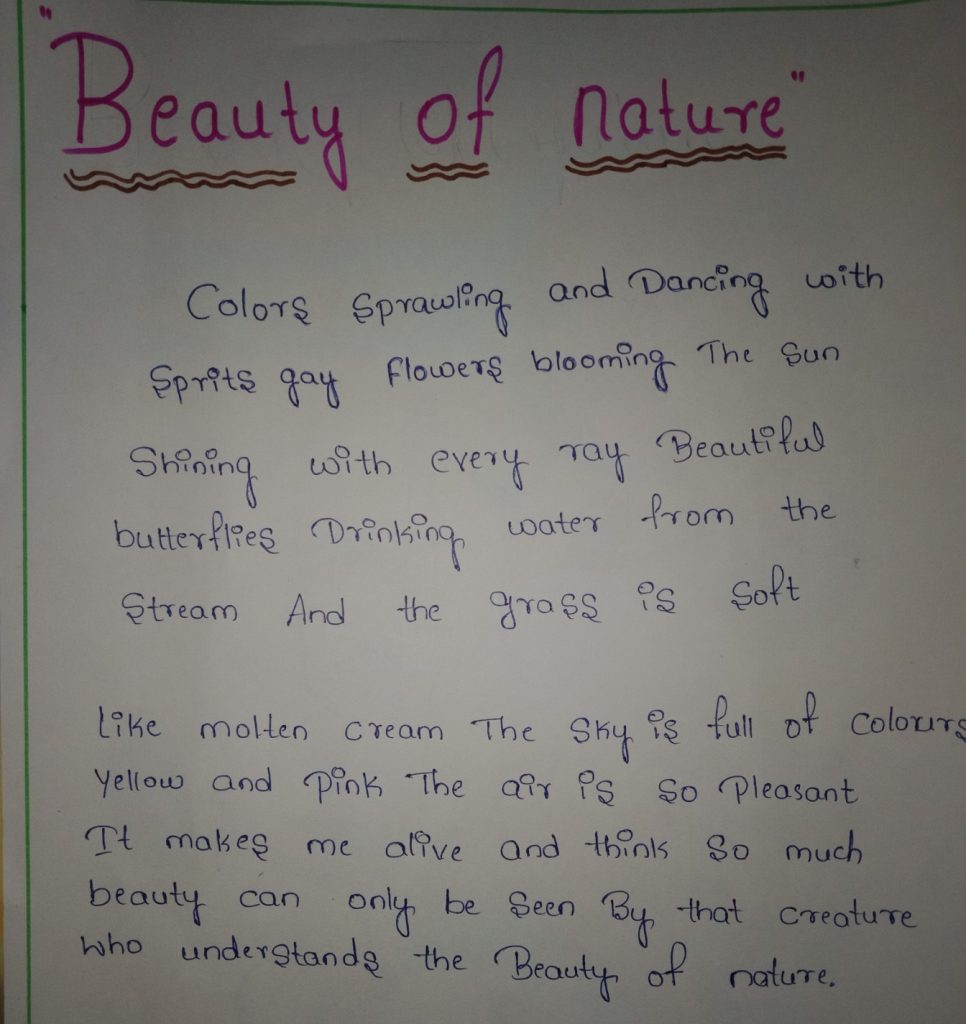 "Beauty of nature"
Colors Sprawling and Dancing with
Sprits gay flowers blooming The Sun
Shining with every ray Beautiful
butterflies Drinking water from the
Stream And the grass is Soft
like molten cream The Sky is full of colours
Yellow and Pink The air is So Pleasant
It makes me alive and think So much
beauty can only be Seen By that creature
who understands the Beauty of nature.